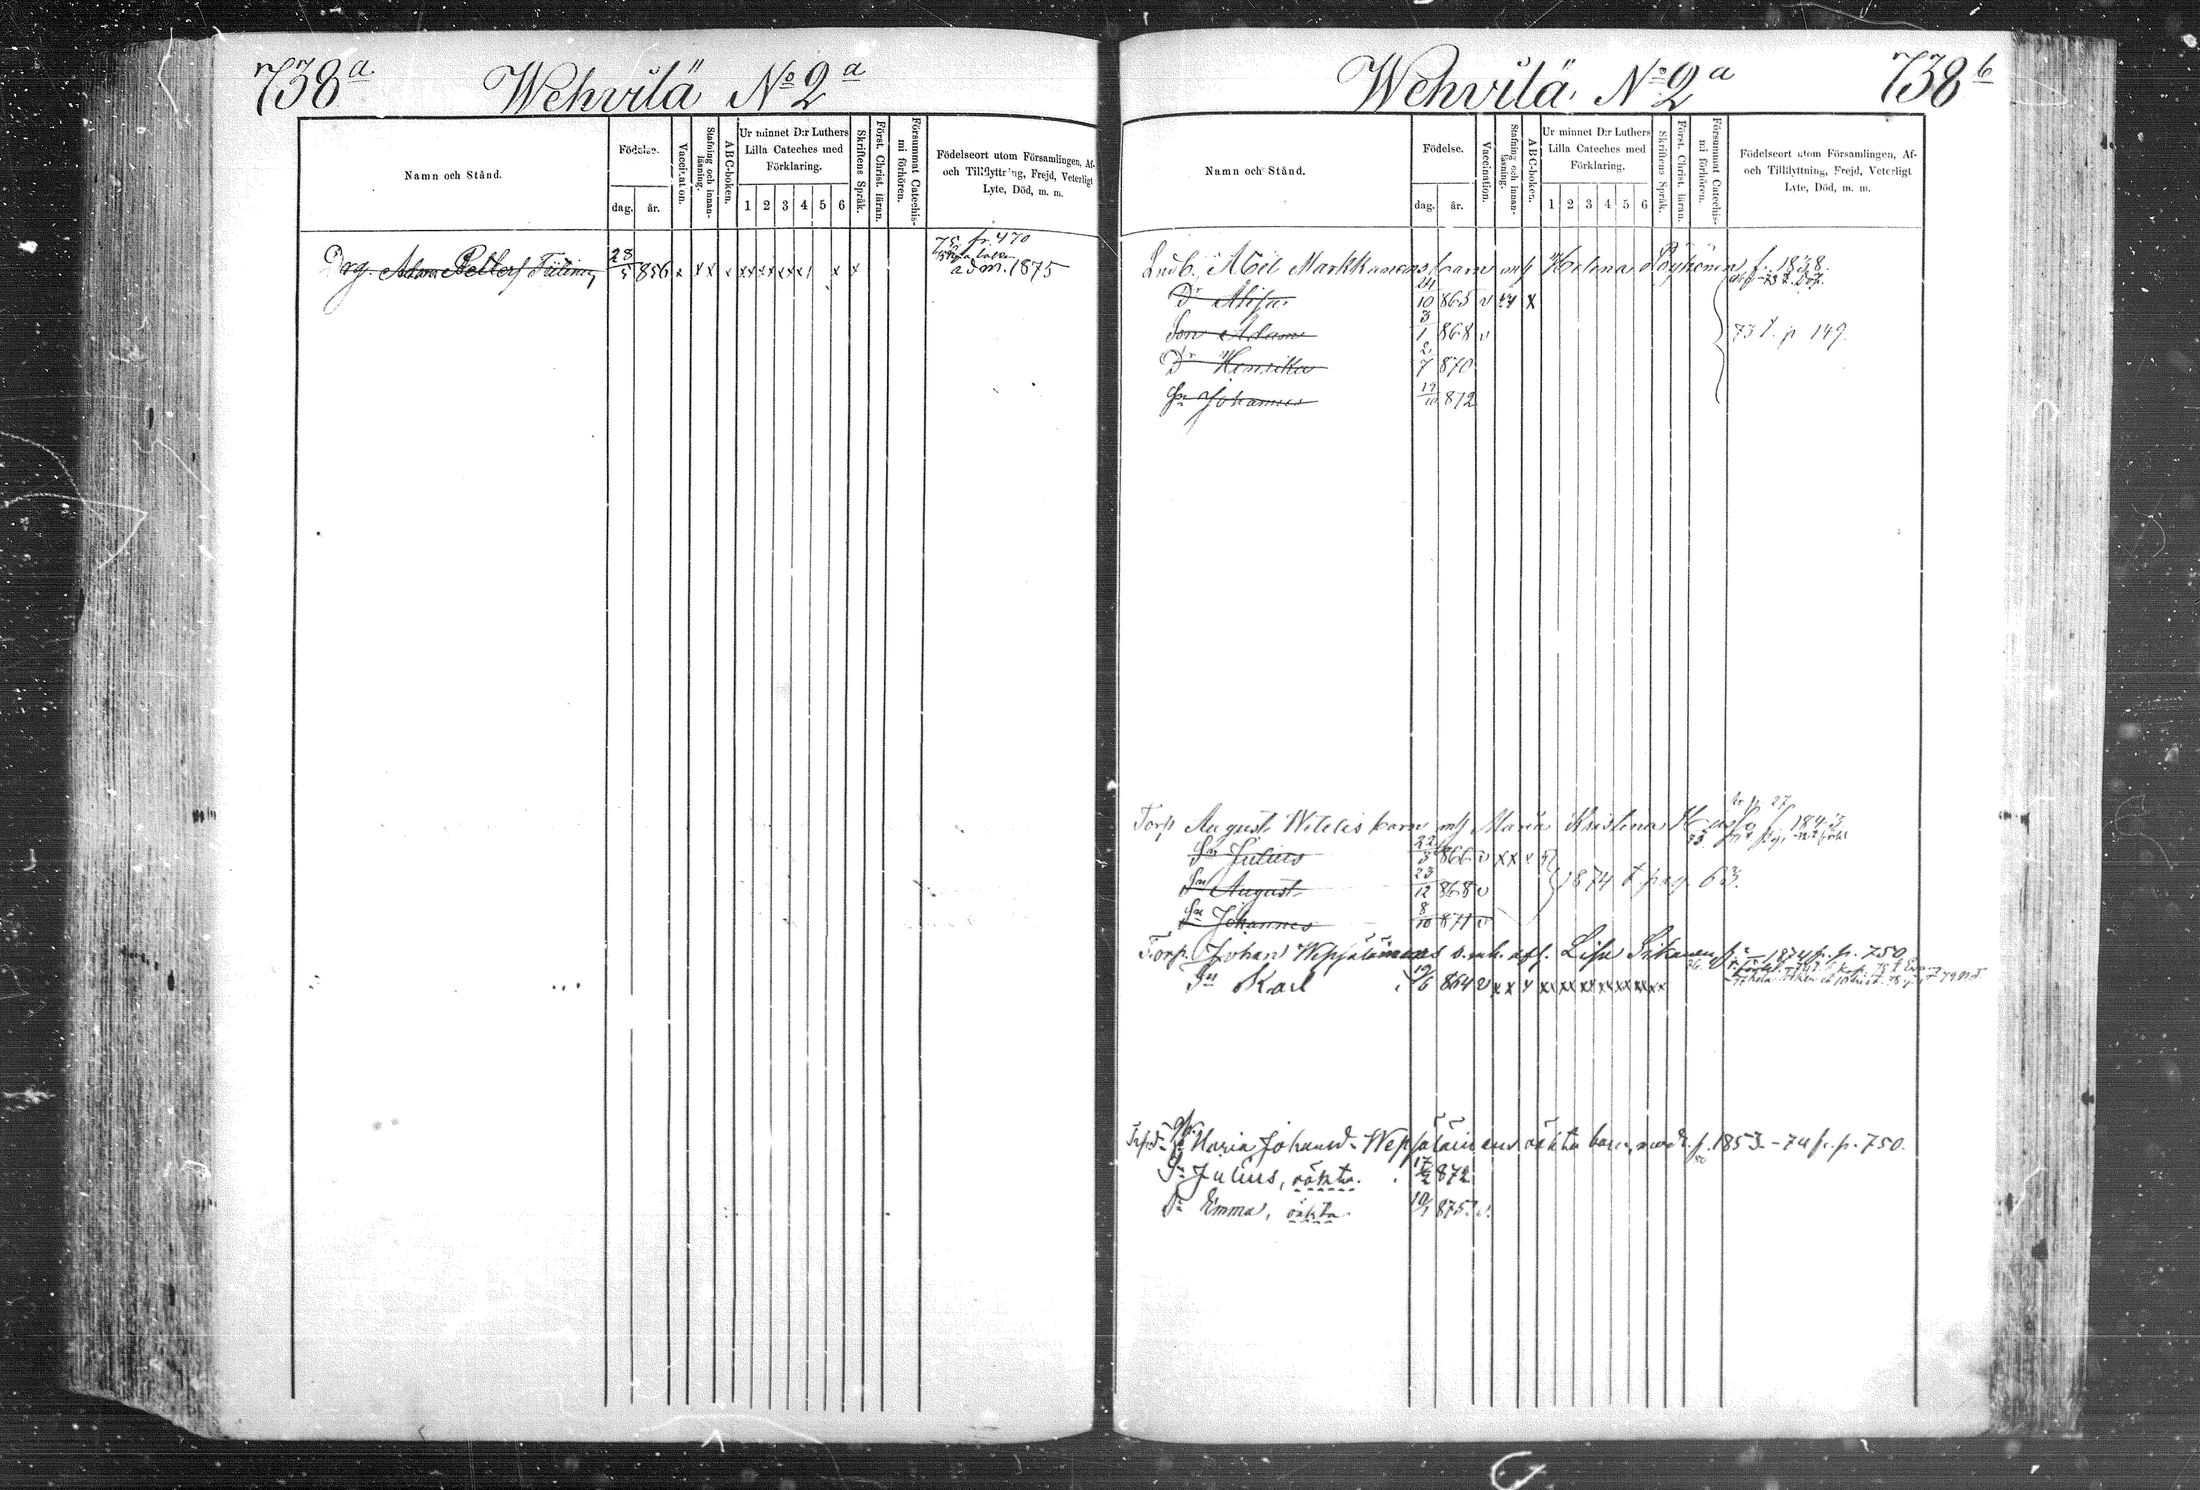 738 a Wehvilä No 2 a
Namn och Stånd.
Födelse.
dag. år.
Vaccination.
Stafning och innanläsning.
ABC-boken.
Ur minnet D:r Luthers Lilla Cateches med Förklaring.
1 2 3 4 5 6
Skriftens Språk.
Först. Christ. läran.
Försummat Catechismi förhören.
Födelseort utom Församlingen, Af- och Tillflyttning, Frejd, Veterligt Lyte, Död, m. m.
75 fr. 470
Drg. Adam Petter 28/5 856 x x x x x x x x x x
adm. 1875
Wehvilä. No 2 a 738 b
Namn och Stånd.
Födelse.
dag. år.
Vaccination.
Stafning och innanläsning.
ABC-boken.
Ur minnet D:r Luthers Lilla Cateches med Förklaring.
1 2 3 4 5 6
Skriftens Språk.
Först. Christ. läran.
Försummat Catechismi förhören.
Födelseort utom Församlingen, Af- och Tillflyttning, Frejd, Veterligt Lyte, Död, m. m.
Abel Markkanens barn mf Helena Pöyhönen f. 1838.
Dr 24/10 865 v x
Son Adam 3/1 868 v 73 t. p 149.
Dr Henrika 2/7 870
Sn Johannes 19/10 872
Torp August barn mf Maria Kristina f. 1843
Sn Julius 22/3 866 v x x
Sn August 23/12 868 v 1874 t pag. 63.
Sn Johannes 8/10 871 v
Torp. Johan Wepsäläinens Lisa 1874 fr. p. 750
Sn Karl 19/6 864 v x x x xx xx xx xx xx xx xx
Maria Johansd. Wepsäläinens oäkta barn, modr. f. 1853 - 74 fr. p. 750.
Sn Julius, oäkta. 17/2 872
Dr Emma, oäkta. 10/1 875 v.